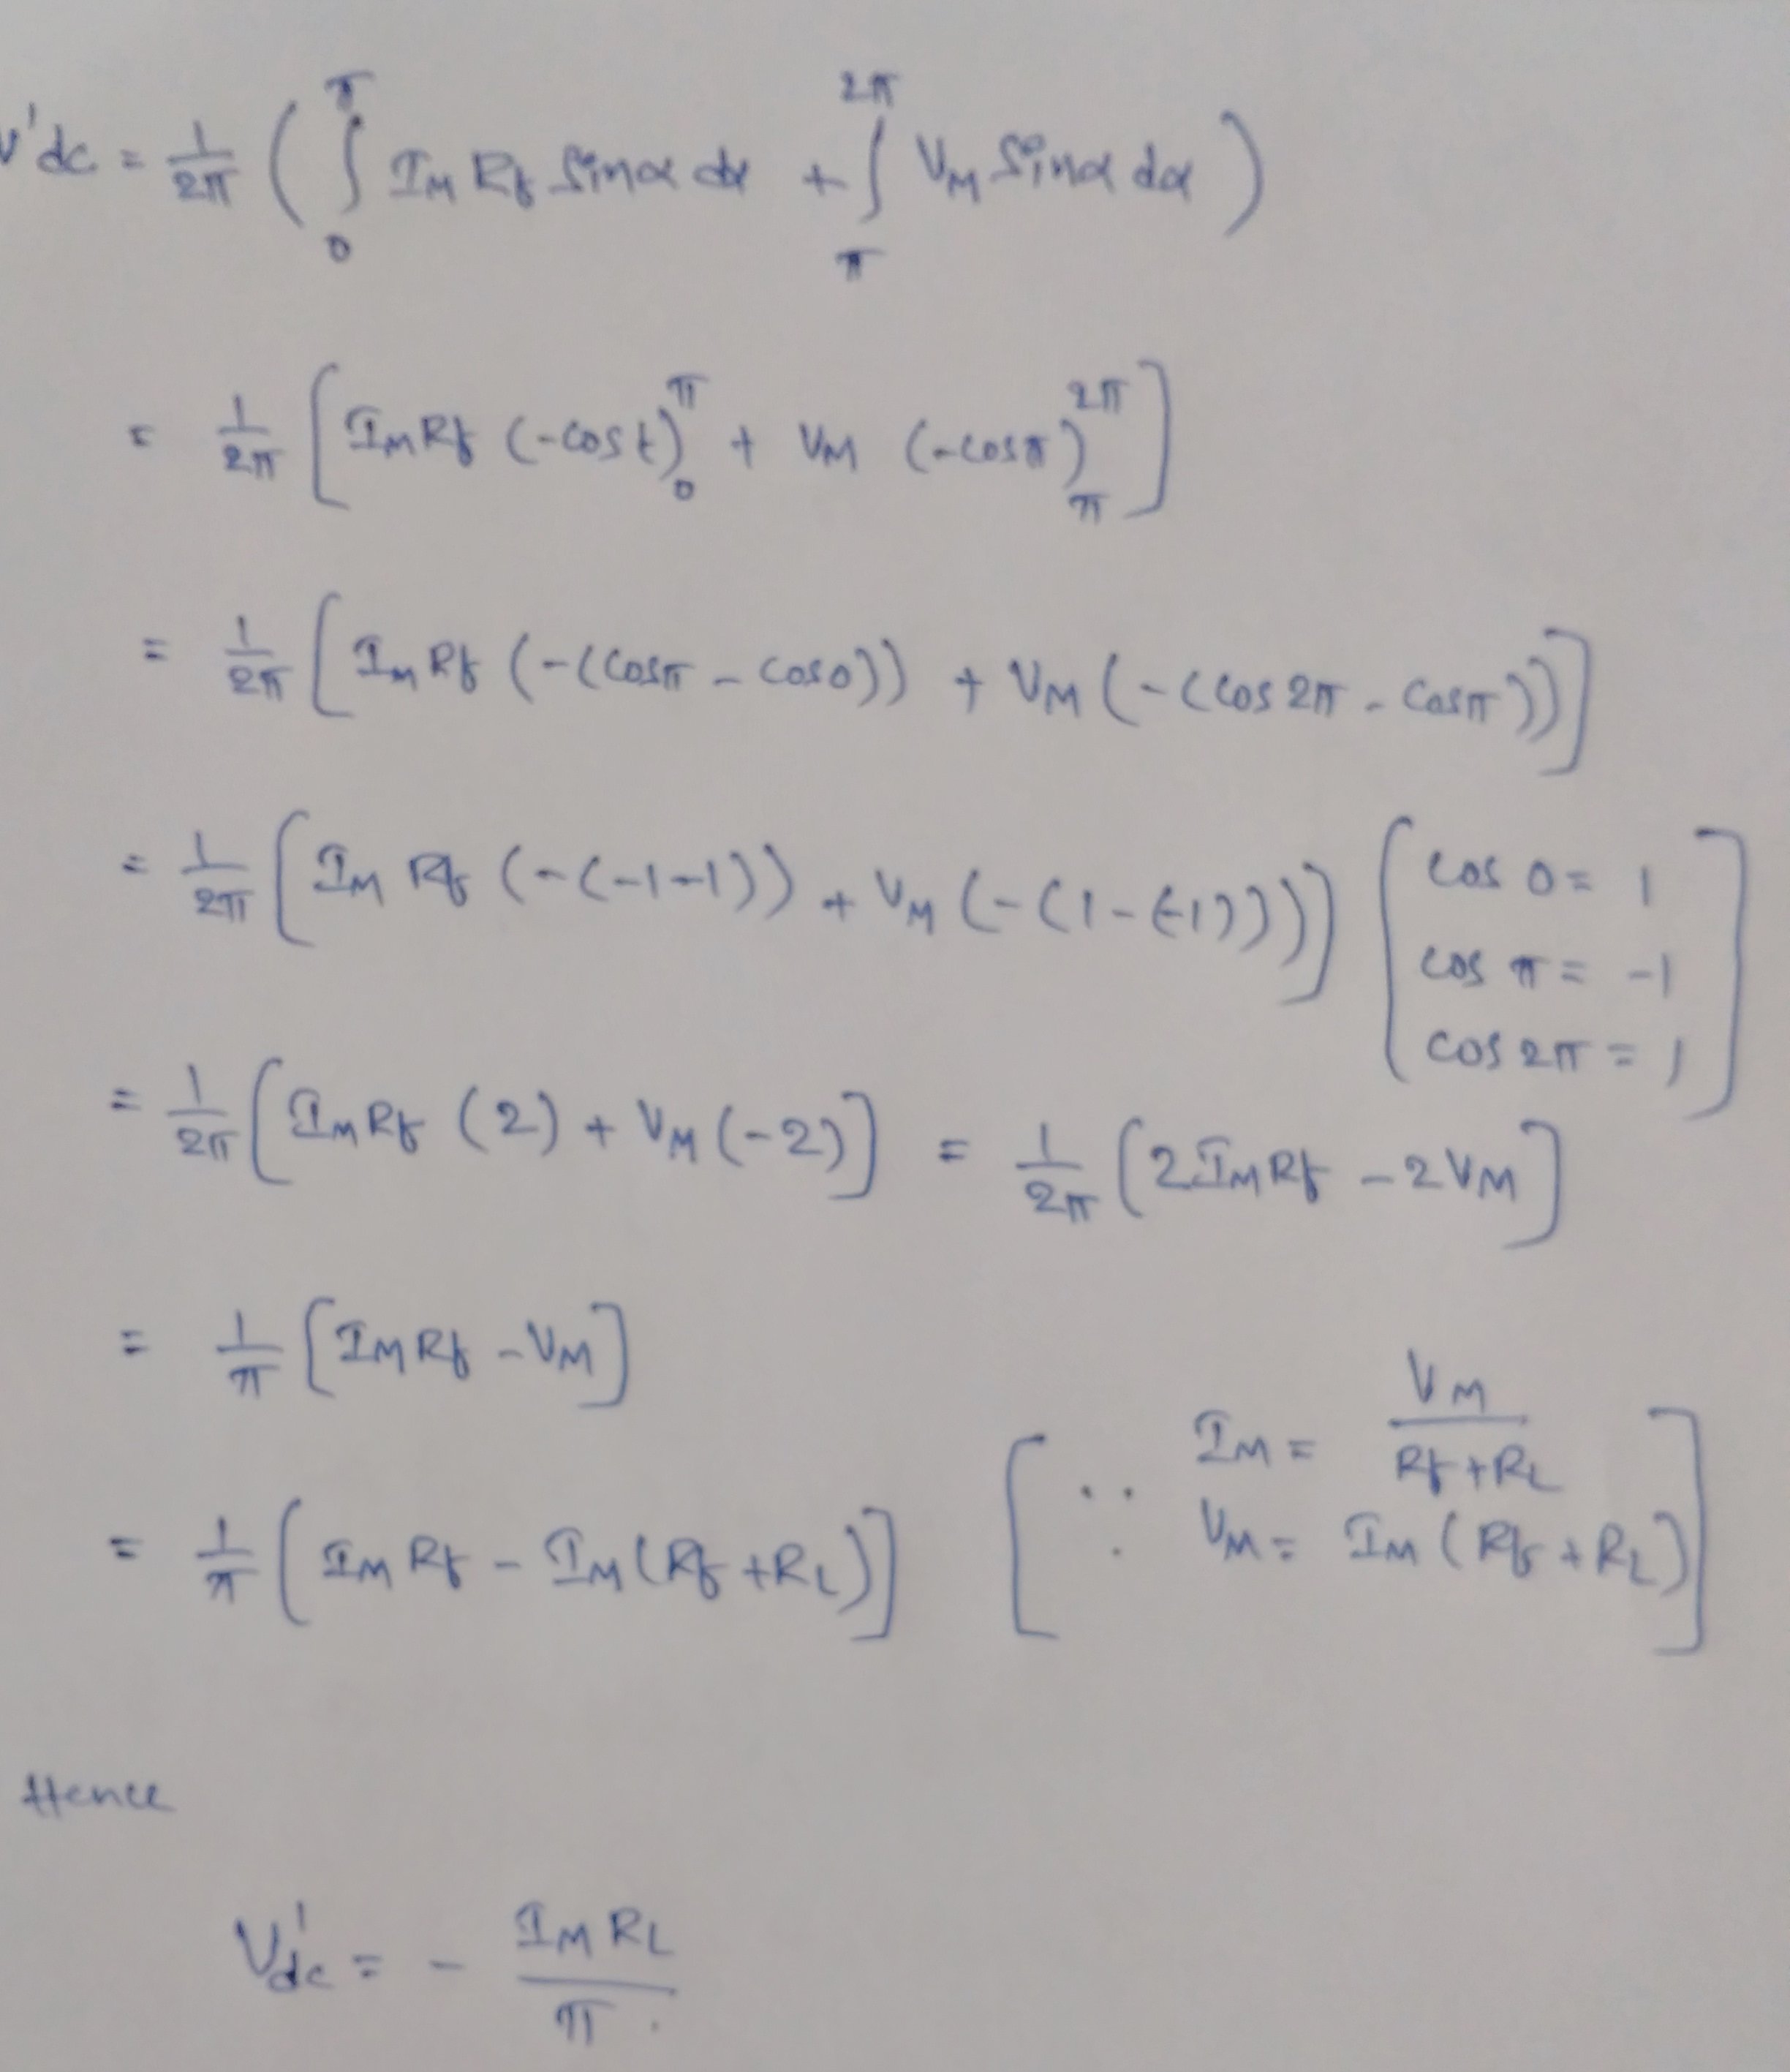 V'dc = 1/2π ( ∫₀^π I_M Rf Sinα dα + ∫_π^2π V_M Sinα dα )
= 1/2π [ I_M Rf (-cos t)₀^π + V_M (-cos π)_π^2π ]
= 1/2π [ I_M Rf (-(cosπ - cos0)) + V_M (-(cos 2π - cosπ)) ]
= 1/2π [ I_M Rf (-(-1-1)) + V_M (-(1-(-1))) ] [ cos 0 = 1
cos π = -1
cos 2π = 1 ]
= 1/2π [ I_M Rf (2) + V_M (-2) ] = 1/2π [ 2 I_M Rf - 2 V_M ]
= 1/π [ I_M Rf - V_M ]
= 1/π [ I_M Rf - I_M (Rf + R_L) ] [ ∵ I_M = V_M / Rf + R_L
V_M = I_M (Rf + R_L) ]
Hence
V'dc = - I_M R_L / π .